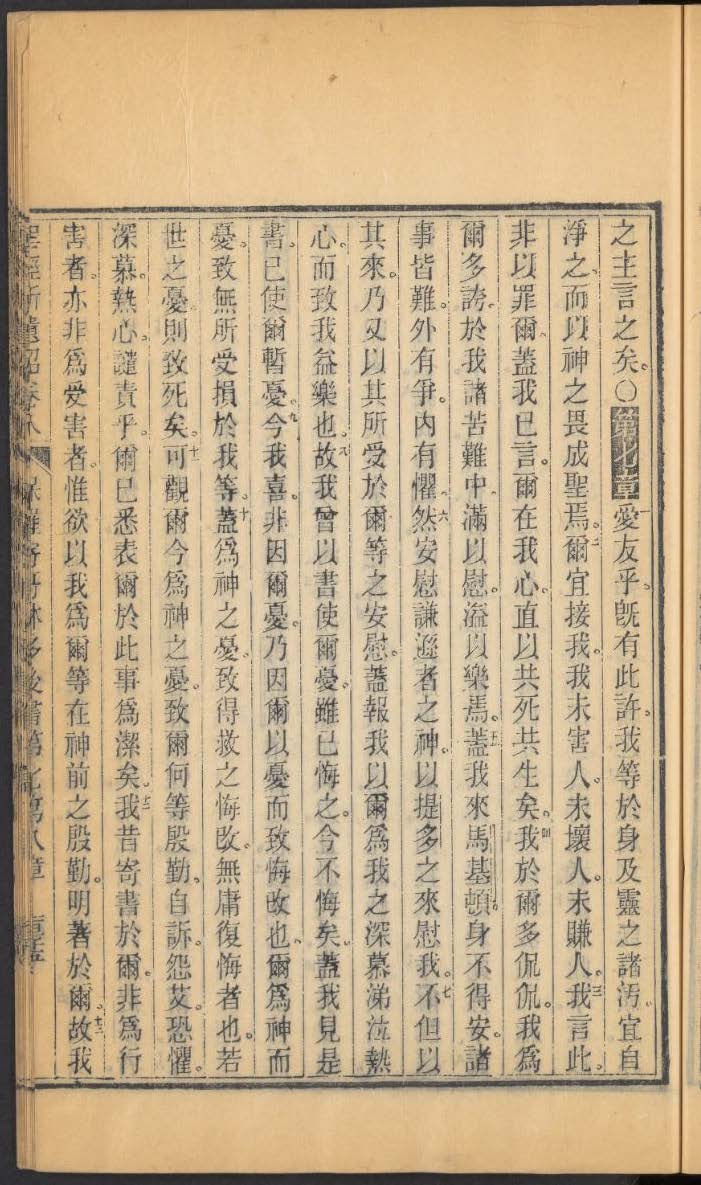 之主言之矣。〇第七章一愛友乎。旣有此許。我等於身及靈之諸汚。宜自
淨之。而以神之畏成聖焉。二爾宜接我。我未害人。未壞人。未賺人。三我言此。
非以罪爾。蓋我已言。爾在我心。直以共死共生矣。四我於爾多侃侃。我爲
爾多誇。於我諸苦難中。滿以慰。溢以樂焉。五蓋我來馬基頓。身不得安。諸
事皆難。外有爭。內有懼。六然安慰謙遜者之神。以提多之來慰我。七不但以
其來。乃又以其所受於爾等之安慰。蓋報我以爾爲我之深慕涕泣熱
心。而致我益樂也。八故我曾以書使爾憂。雖已悔之。今不悔矣。蓋我見是
書。已使爾暫憂。九今我喜。非因爾憂。乃因爾以憂而致悔改也。爾爲神而
憂。致無所受損於我等。十蓋爲神之憂。致得救之悔改。無庸復悔者也。若
世之憂。則致死矣。十一可觀爾今爲神之憂。致爾何等殷勤。自訴。怨艾。恐懼。
深慕。熱心。譴責乎。爾已悉表爾於此事爲潔矣。十二我昔寄書於爾。非爲行
害者。亦非爲受害者。惟欲以我爲爾等在神前之殷勤。明著於爾。十三故我
聖經新遺詔卷八 保羅寄哥林多後書第七第八章